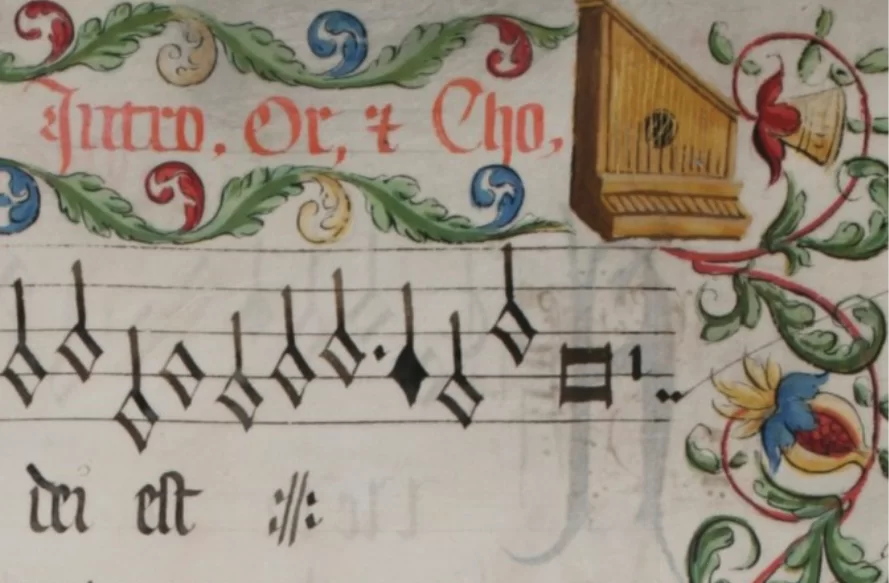 Intro, Or, & Cho,
dei est :||: